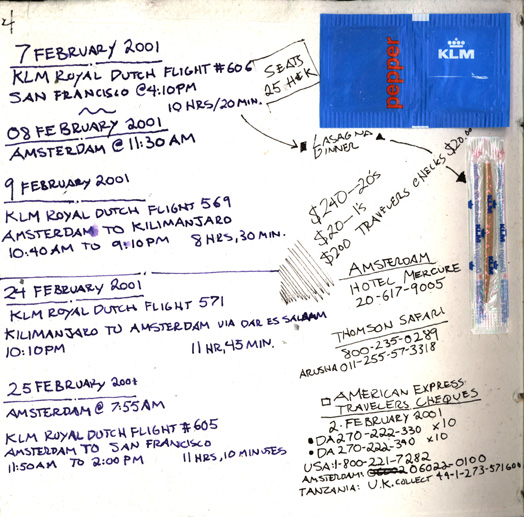 4
7 FEBRUARY 2001
KLM ROYAL DUTCH FLIGHT #606
SAN FRANCISCO @ 4:10PM
10 HRS/20 MIN.
SEATS
25 H&K
pepper
KLM
08 FEBRUARY 2001
AMSTERDAM @ 11:30 AM
LASAGNA
DINNER
9 FEBRUARY 2001
KLM ROYAL DUTCH FLIGHT 569
AMSTERDAM TO KILIMANJARO
10:40 AM TO 9:10 PM 8 HRS, 30 MIN.
$240—20's
$20—1's
$200 TRAVELERS CHECKS $20.00
KLM
24 FEBRUARY 2001
KLM ROYAL DUTCH FLIGHT 571
KILIMANJARO TO AMSTERDAM VIA DAR ES SALAAM
10:10PM 11 HR, 45 MIN.
AMSTERDAM
HOTEL MERCURE
20-617-9005
THOMSON SAFARI
800-235-0289
ARUSHA 011-255-57-3318
25 FEBRUARY 2001
AMSTERDAM @ 7:55AM
KLM ROYAL DUTCH FLIGHT #605
AMSTERDAM TO SAN FRANCISCO
11:50AM TO 2:00 PM 11 HRS, 10 MINUTES
AMERICAN EXPRESS
TRAVELERS CHEQUES
2 FEBRUARY 2001
• DA 270-222-330 x10
• DA 270-222-390 x10
USA: 1-800-221-7282
AMSTERDAM: 206022-0100
TANZANIA: U.K. COLLECT 44-1-273-571600